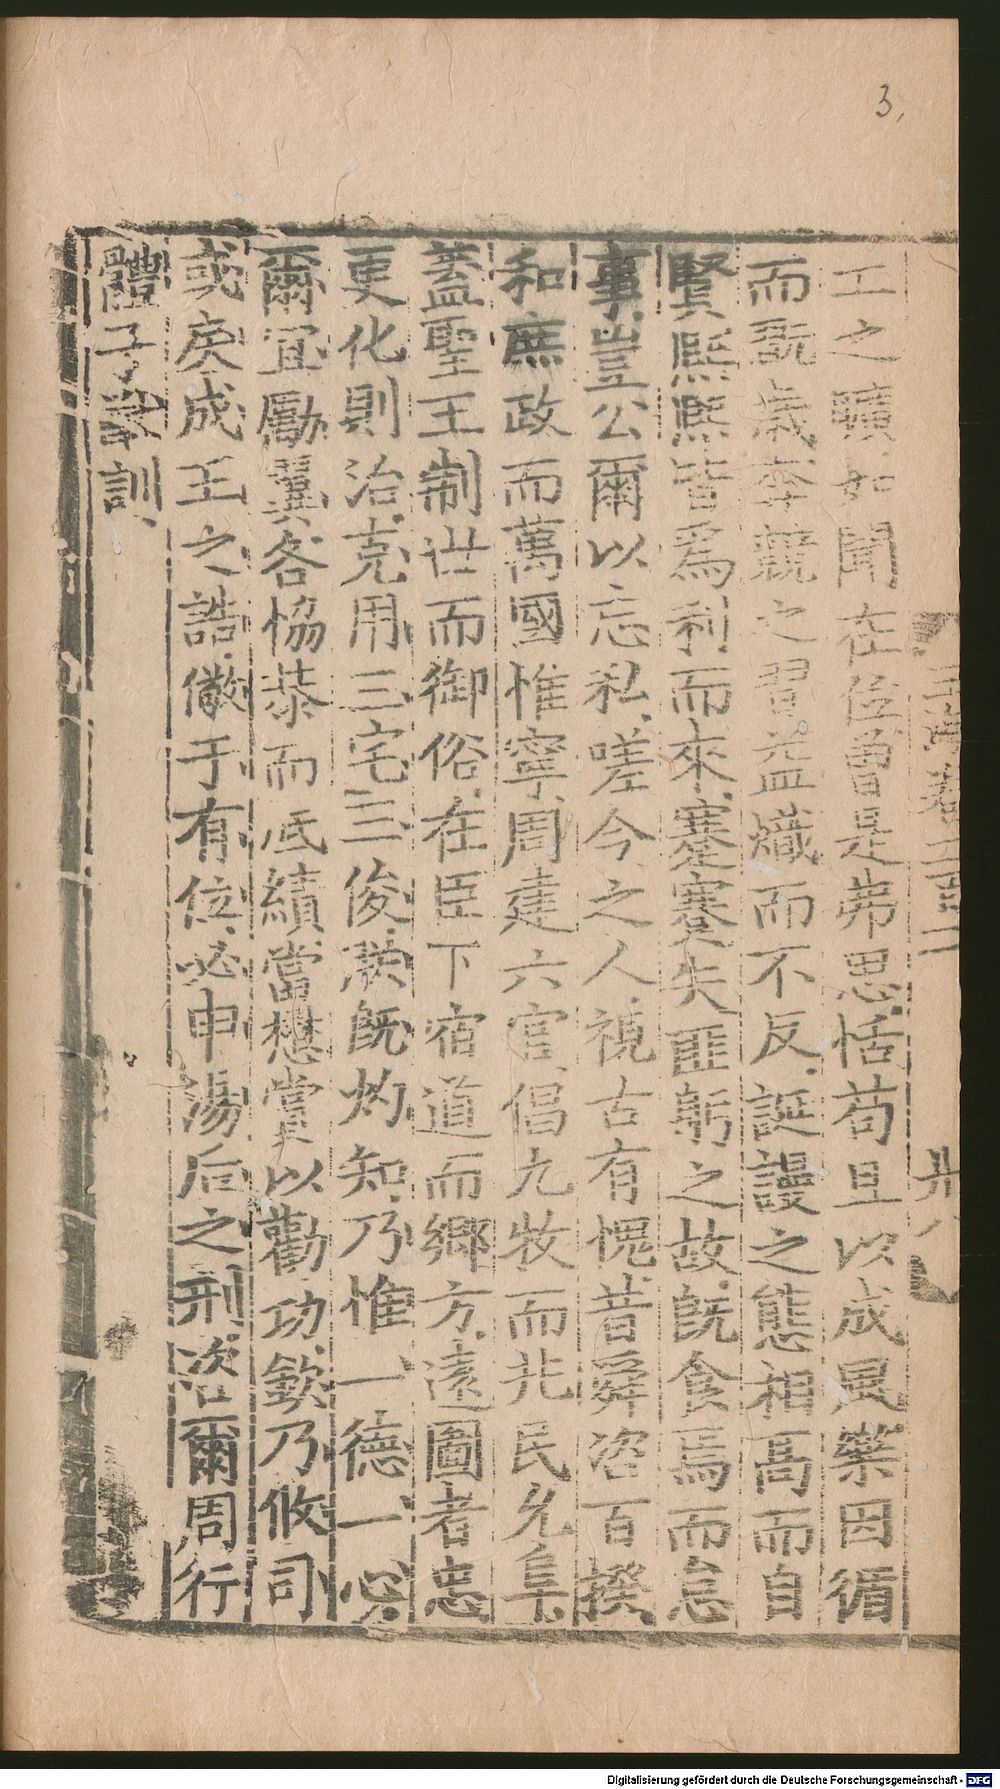 3,
工之曠如聞在位曾是弗思恬苟且以成風業因循
而翫歲奔競之習益熾而不反誕謾之態相高而自
賢熙熙皆爲利而來蹇蹇失匪躬之故旣食焉而怠
事豈公爾以忘私嗟今之人視古有愧昔舜咨百揆
和庶政而萬國惟寧周建六官倡九牧而兆民允阜
蓋聖王制世而御俗在臣下宿道而鄉方遠圖者忠
更化則治克用三宅三俊灼旣灼知乃惟一德一心
爾宜勵翼各恊恭而底績當懋賞以勸功欽乃攸司
或戾成王之誥儆于有位必申湯后之刑咨爾周行
體予訓
卷二百二
廿八
Digitalisierung gefördert durch die Deutsche Forschungsgemeinschaft - DFG